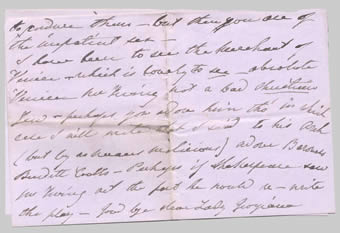 to endure them – but then you are of
the impatient sex –
I have been to see the Merchant of
Venice – which is lovely to see – absolute
Venice Mr Irving not a bad Christian
Jew – perhaps you adore him tho' in which
case I will
(but by no means malicious) adore Baroness
Burdett Coutts – Perhaps if Shakespeare saw
Mr Irving act the part he would re-write
the play – Good bye dear Lady Georgiana